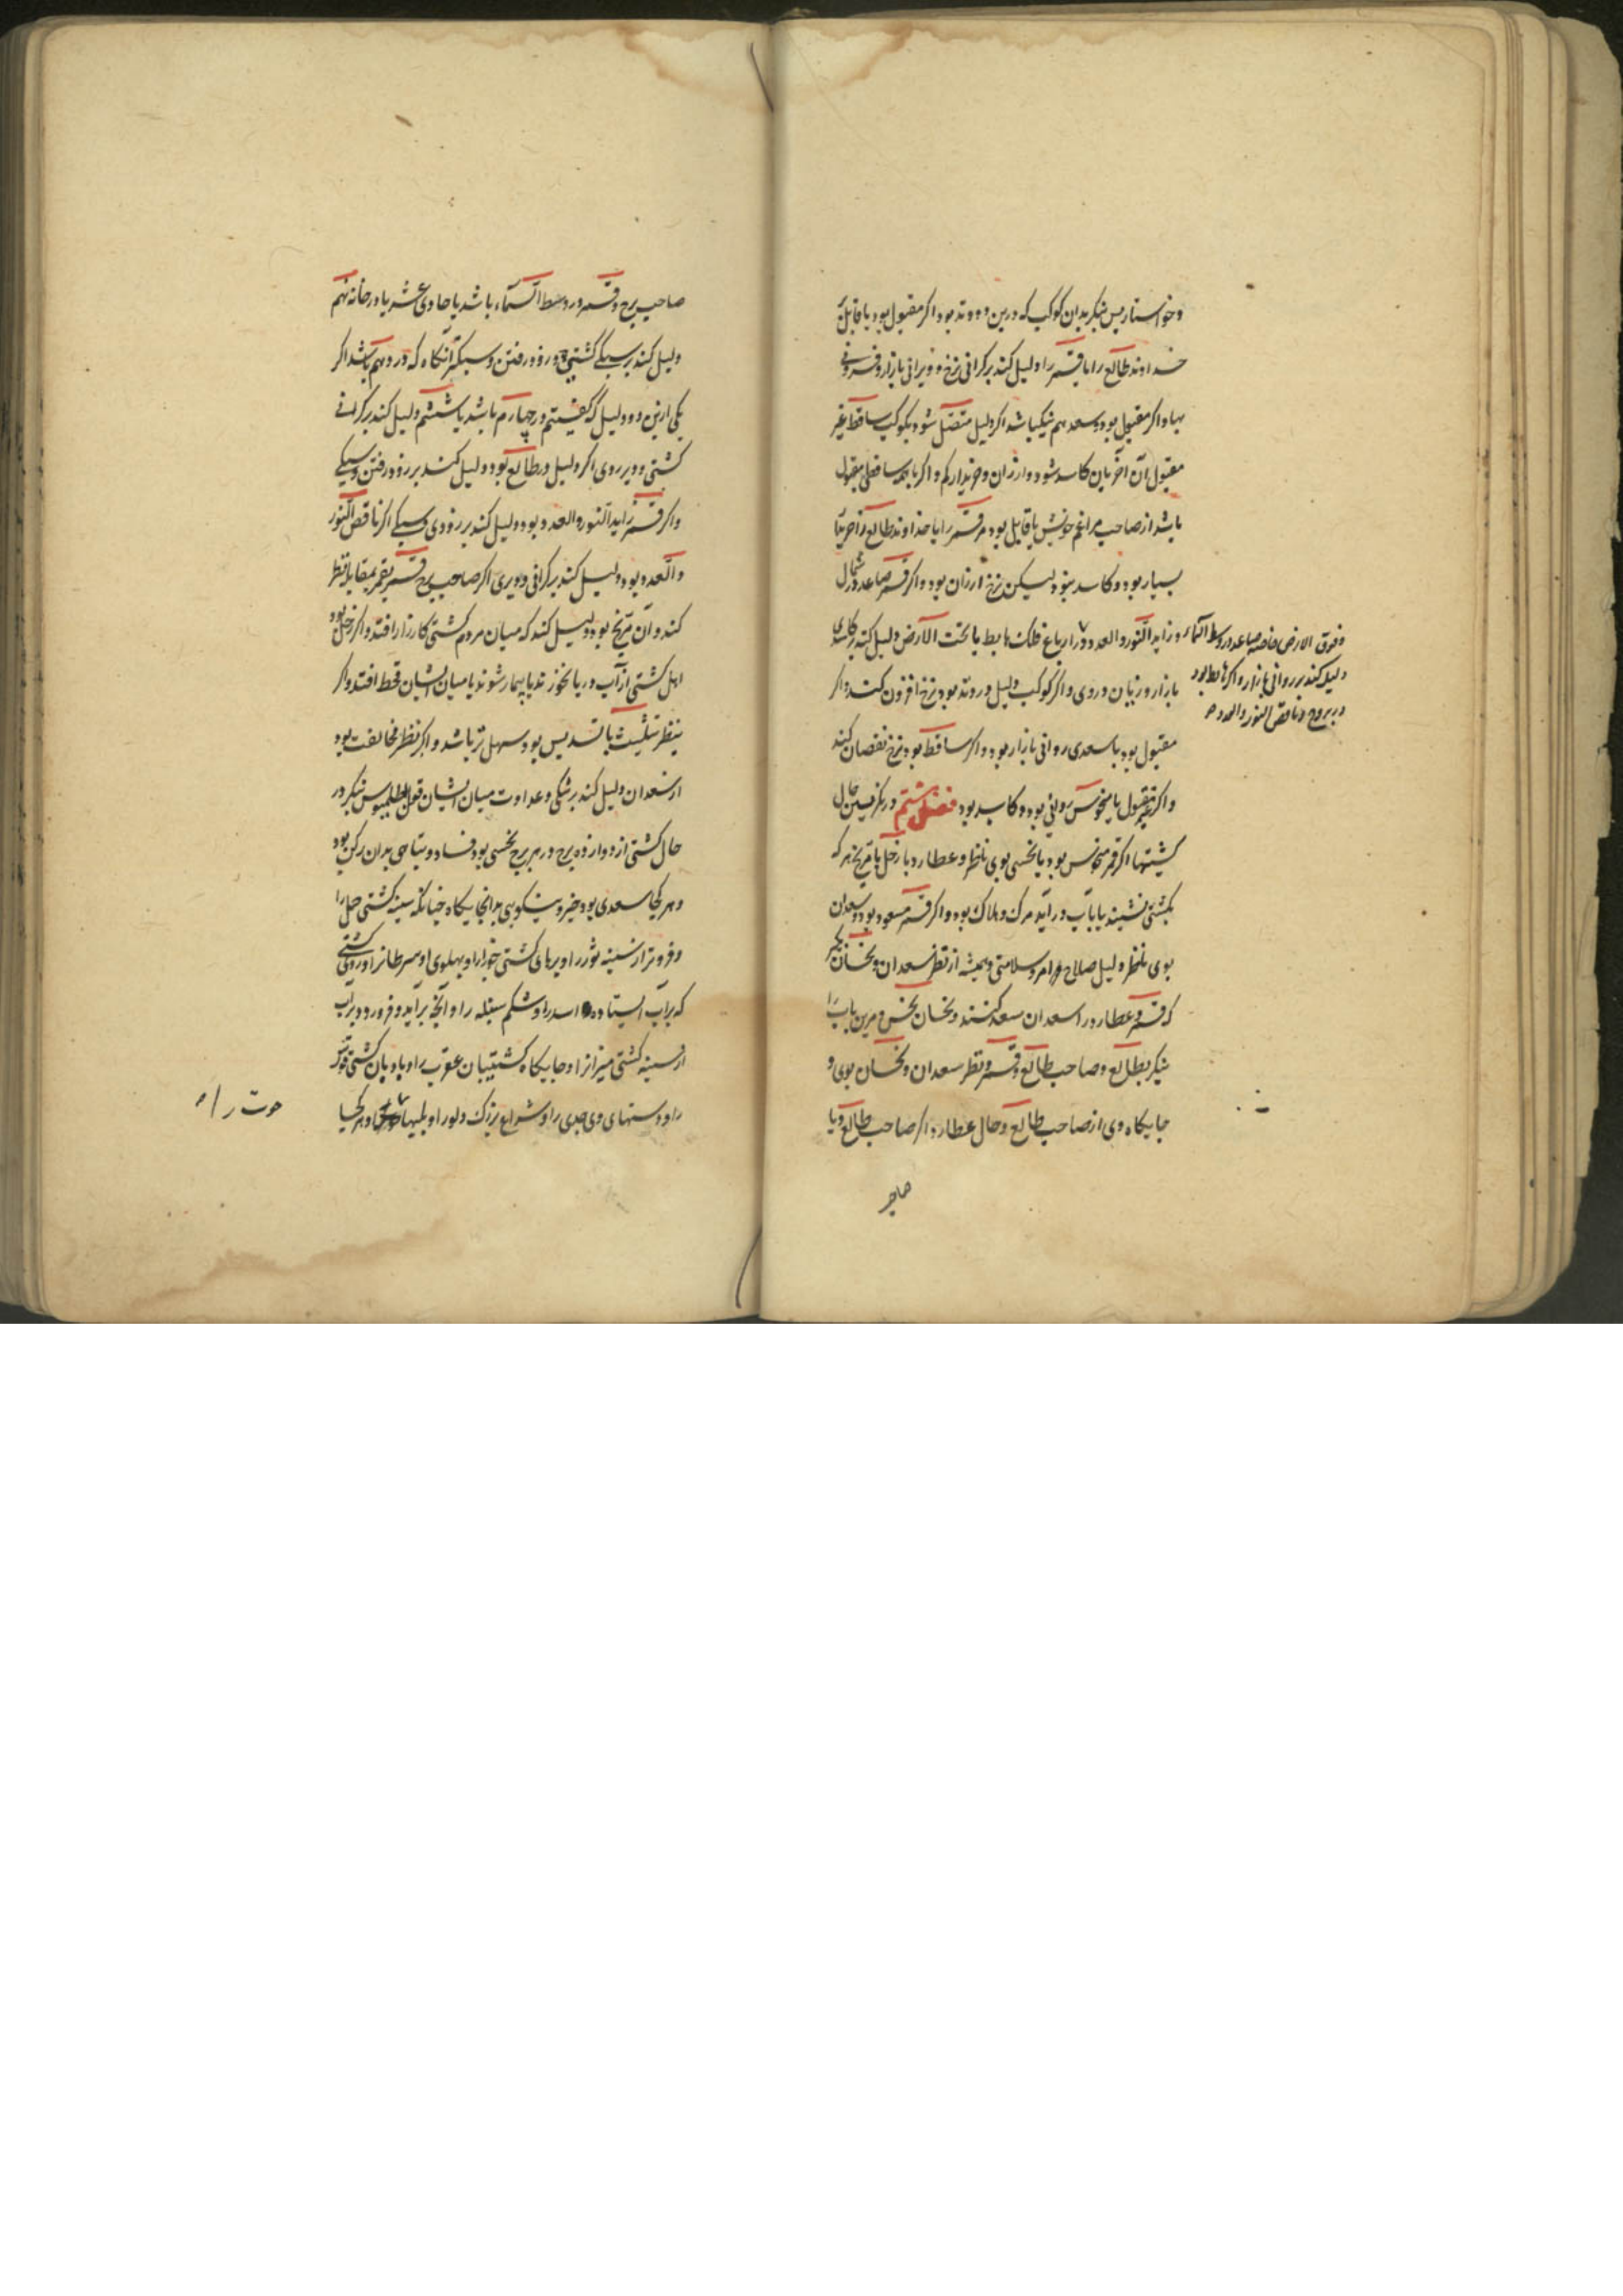 و خواستار پس بنکرید بدان کوکب که درین دو وتد بود اکر مقبول بود یا قابل
خداوند طالع را یا قمر را دلیل کند بر کرانی نرخ و ویرانی بازار و فزونی
بها و اکر مقبول بود و سعد هم نیک باشد اکر دلیل متصل شود بکوکب ساقط غیر
مقبول آن آخریان کاسد شود و ارزان و خریدار کم و اکر با همه ساقطی مقبول
باشد از صاحب مراغم خویش یا قابل بود مر قمر را یا خداوند طالع را آخریان
بسیار بود و کاسد بنود لیکن نرخ ارزان بود و اکر قمر صاعد در شمال
و زاید النور و العدد و در ارباع فلک هابط یا تحت الارض دلیل کند بر کاسدی
بازار و زیان در وی و اکر کوکب دلیل در وتد بود نرخ افزون کند و اکر
مقبول بود با سعدی روانی بازار بود و اکر ساقط بود نرخ نقصان کند
و اکر غیر مقبول یا منحوس روانی بود و کاسد بود فصل هشتم در نکریستن حال
کشتیها اکر قمر منحوس بود یا نحسی بوی ناظر و عطارد با زحل یا مریخ هر که
بکشتی نشیند یا بآب در آید مرک و هلاک بود و اکر قمر مسعود بود و سعدان
بوی ناظر دلیل صلاح امر و سلامتی و همیشه از نظر سعدان و نحسان بنکر
که قمر و عطارد را سعدان سعد کنند و نحسان نحس و مرین باب را
بنکر بطالع و صاحب طالع و قمر و نظر سعدان و نحسان بوی و
جایکاه وی از صاحب طالع و حال عطارد از صاحب طالع و یا
صاحب
و فوق الارض صاعد در وسط السماء
دلیل کند بر روانی بازار و اکر هابط بود
در بروج و ناقص النور و العدد
صاحب برج و قمر در وسط السماء باشد یا حادی عشر یا در خانه نهم
دلیل کند بر سبکی کشتی و زود رفتن و سبکتر آنکاه که در دهم باشد اکر
یکی ازین دو دلیل که کفتیم در چهارم باشد یا ششم دلیل کند بر کرانی
کشتی و دیر روی اکر دلیل در طالع بود دلیل کند بر زود رفتن و سبکی
و اکر قمر زاید النور و العدد بود دلیل کند بر زودی و سبکی اکر ناقص النور
و العدد بود دلیل کند بر کرانی و دیری اکر صاحب برج قمر بقمر بمقابله نظر
کند و آن مریخ بود دلیل کند که میان مردم کشتی کارزار افتد و اکر زحل بود
اهل کشتی از آب دریا بخورند یا بیمار شوند یا میان ایشان قحط افتد و اکر
بنظر تثلیث یا تسدیس بود سهل تر باشد و اکر نظر مخالفت بود
از سعدان دلیل کند بر شکی و عداوت میان ایشان قول بطلمیوس بنکر در
حال کشتی از دوازده برج در هر برج نحسی بود فساد و تباهی بدان رکن بود
و هر کجا سعدی بود خیر و نیکویی بدانجایکاه چنانکه سینه کشتی حمل را
و فروتر از سینه ثور را و برهای کشتی جوزا را و پهلوی او سرطانرا و روی کشتی
که بر آب ایستاده اسد را و شکم سنبله را و آنچه بر آید و فرو رود بر آب
از سینه کشتی میزانرا و جایکاه کشتیبان عقرب را و بادبان کشتی قوس
را و دستهای وی جدی را و شراع بزرک دلو را و و هر کجا
حوت را